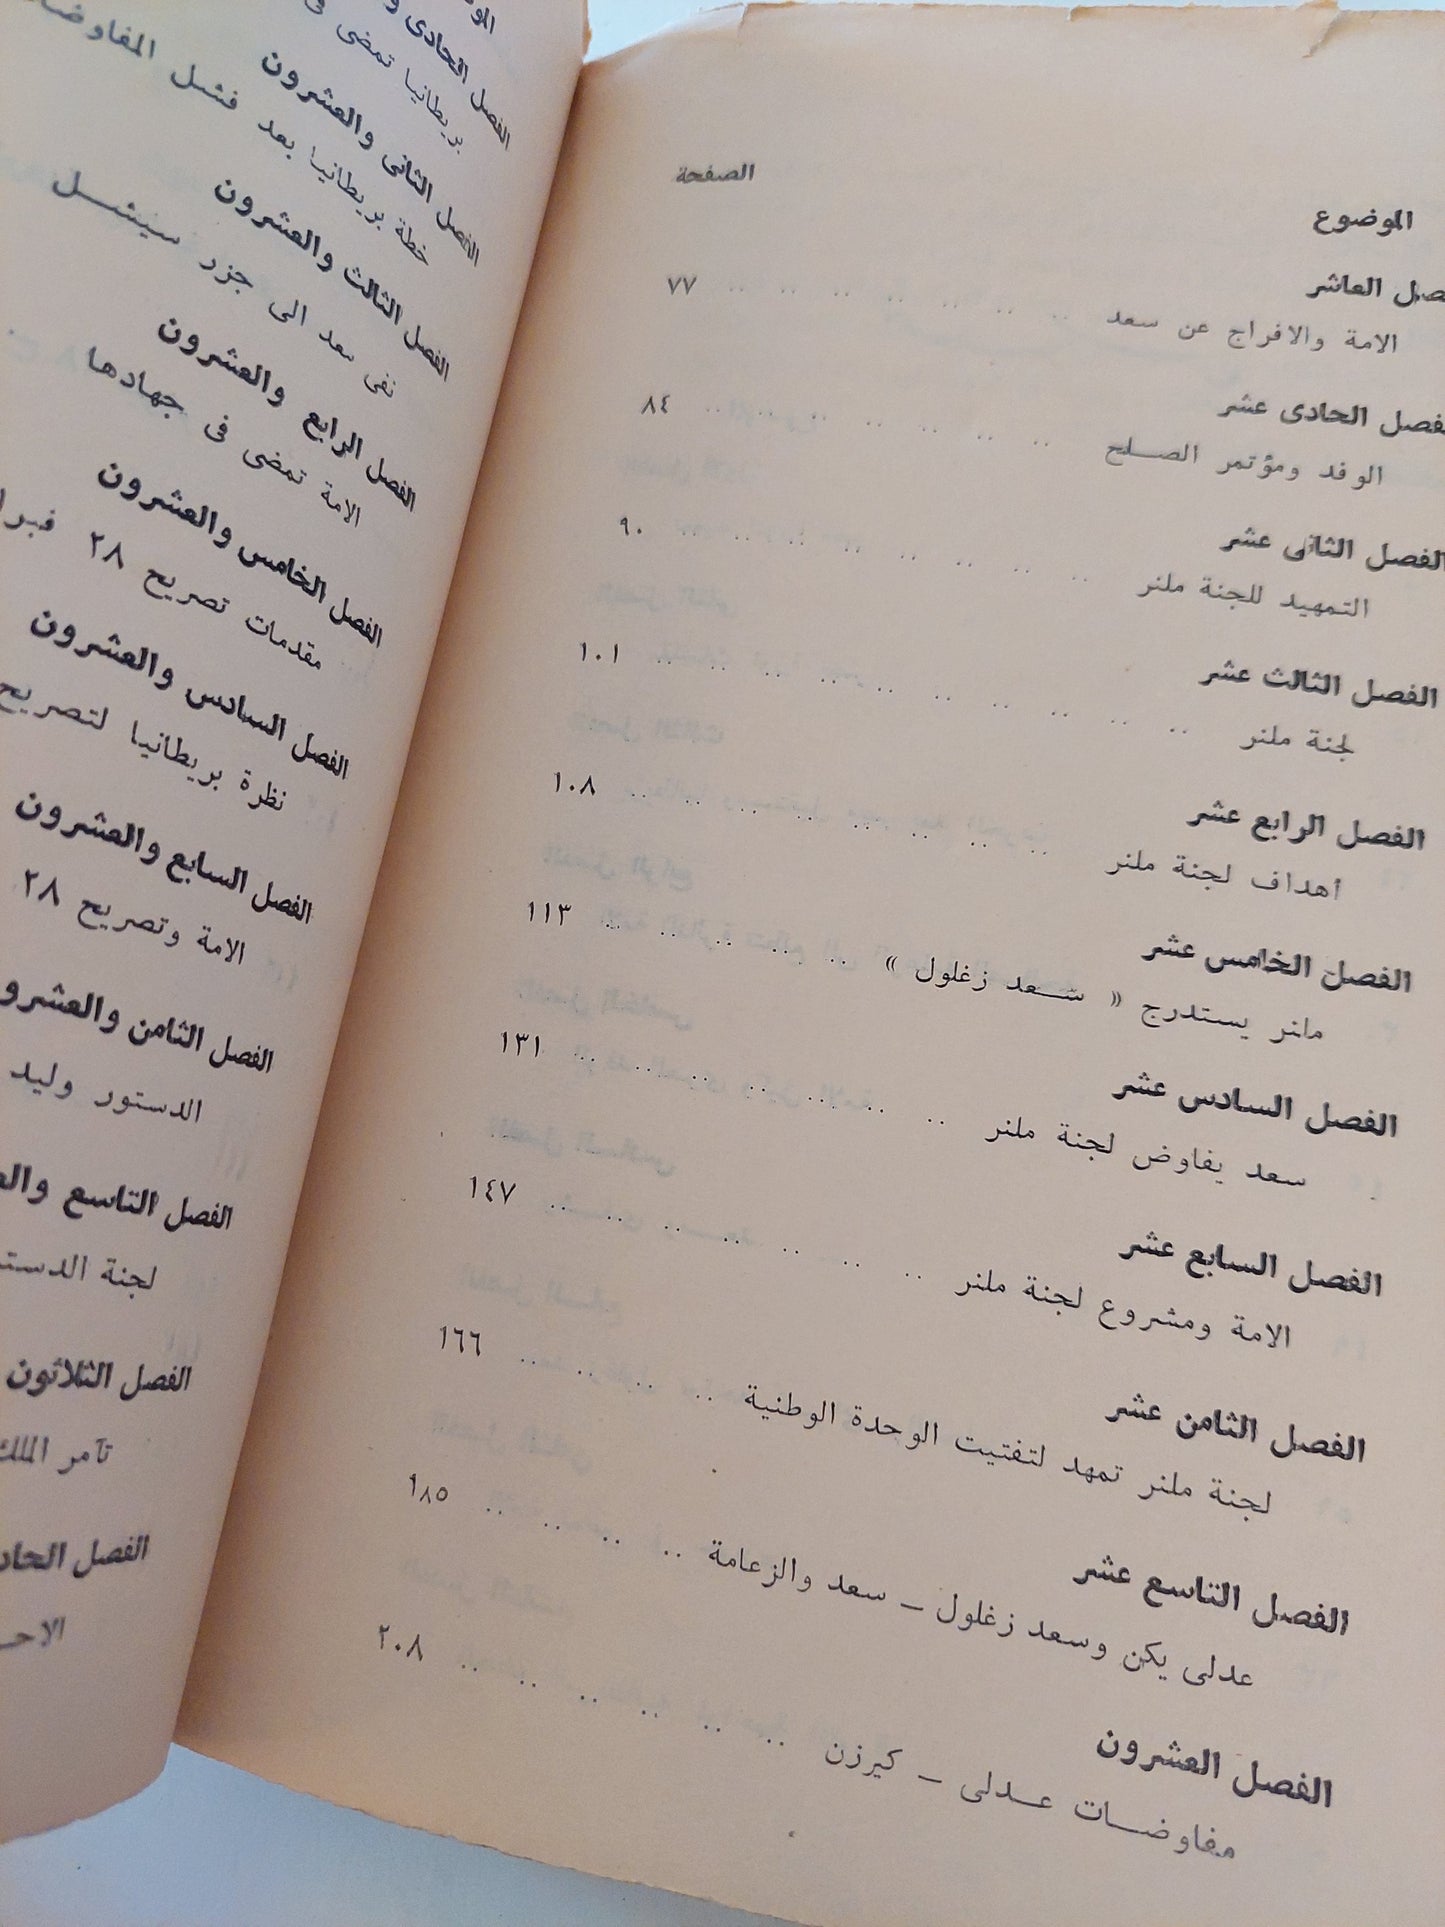 الموضوع
الصفحة
الفصل العاشر
الامة والافراج عن سعد .. .. .. .. .. .. .. ٧٧
الفصل الحادى عشر
الوفد ومؤتمر الصلح .. .. .. .. .. .. .. ٨٤
الفصل الثانى عشر
التمهيد للجنة ملنر .. .. .. .. .. .. .. .. ٩٠
الفصل الثالث عشر
لجنة ملنر .. .. .. .. .. .. .. .. .. .. ١٠١
الفصل الرابع عشر
أهداف لجنة ملنر .. .. .. .. .. .. .. .. ١٠٨
الفصل الخامس عشر
ملنر يستدرج « سعد زغلول » .. .. .. .. .. ١١٣
الفصل السادس عشر
سعد يفاوض لجنة ملنر .. .. .. .. .. .. .. ١٣١
الفصل السابع عشر
الامة ومشروع لجنة ملنر .. .. .. .. .. .. .. ١٤٧
الفصل الثامن عشر
لجنة ملنر تمهد لتفتيت الوحدة الوطنية .. .. .. .. ١٦٦
الفصل التاسع عشر
عدلى يكن وسعد زغلول – سعد والزعامة .. .. .. .. ١٨٥
الفصل العشرون
مفاوضات عدلى – كيرزن .. .. .. .. .. .. ٢٠٨
الفصل الحادى
بريطانيا تمضى
الفصل الثانى والعشرون
خطة بريطانيا بعد فشل
الفصل الثالث والعشرون
نفى سعد الى جزر سيشل
الفصل الرابع والعشرون
الامة تمضى فى جهادها
الفصل الخامس والعشرون
مقدمات تصريح ٢٨
الفصل السادس والعشرون
نظرة بريطانيا لتصريح
الفصل السابع والعشرون
الامة وتصريح ٢٨
الفصل الثامن
الدستور وليد
الفصل التاسع
لجنة
الفصل الثلاثون
تآمر الملك
الفصل